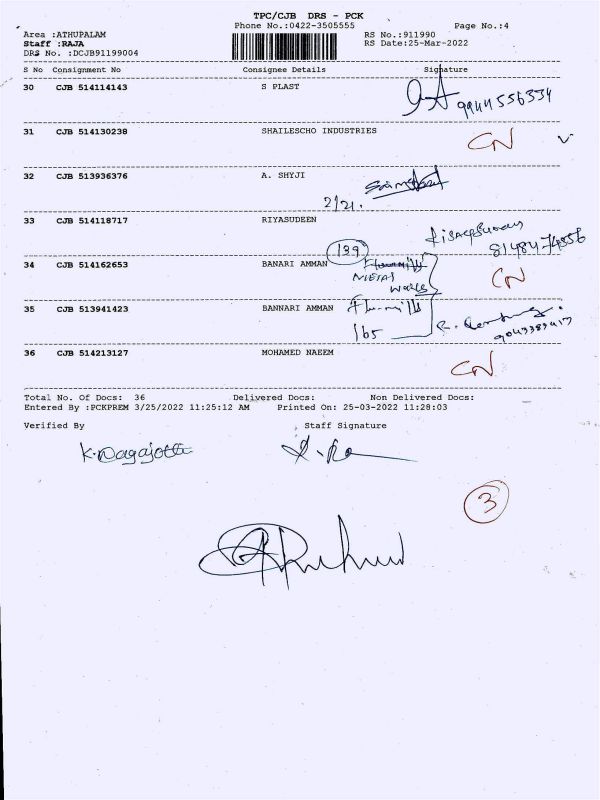 TPC/CJB DRS - PCK
Phone No.:0422-3505555 Page No.:4
Area :ATHUPALAM RS No.:911990
Staff :RAJA RS Date:25-Mar-2022
DRS No. :DCJB91199004
S No Consignment No Consignee Details Signature
30 CJB 514114143 S PLAST
31 CJB 514130238 SHAILESCHO INDUSTRIES CN
32 CJB 513936376 A. SHYJI
2/21.
33 CJB 514118717 RIYASUDEEN
139
34 CJB 514162653 BANARI AMMAN CN
METAL
WORKS
35 CJB 513941423 BANNARI AMMAN
165
36 CJB 514213127 MOHAMED NAEEM CN
Total No. Of Docs: 36 Delivered Docs: Non Delivered Docs:
Entered By :PCKPREM 3/25/2022 11:25:12 AM Printed On: 25-03-2022 11:28:03
Verified By Staff Signature
3